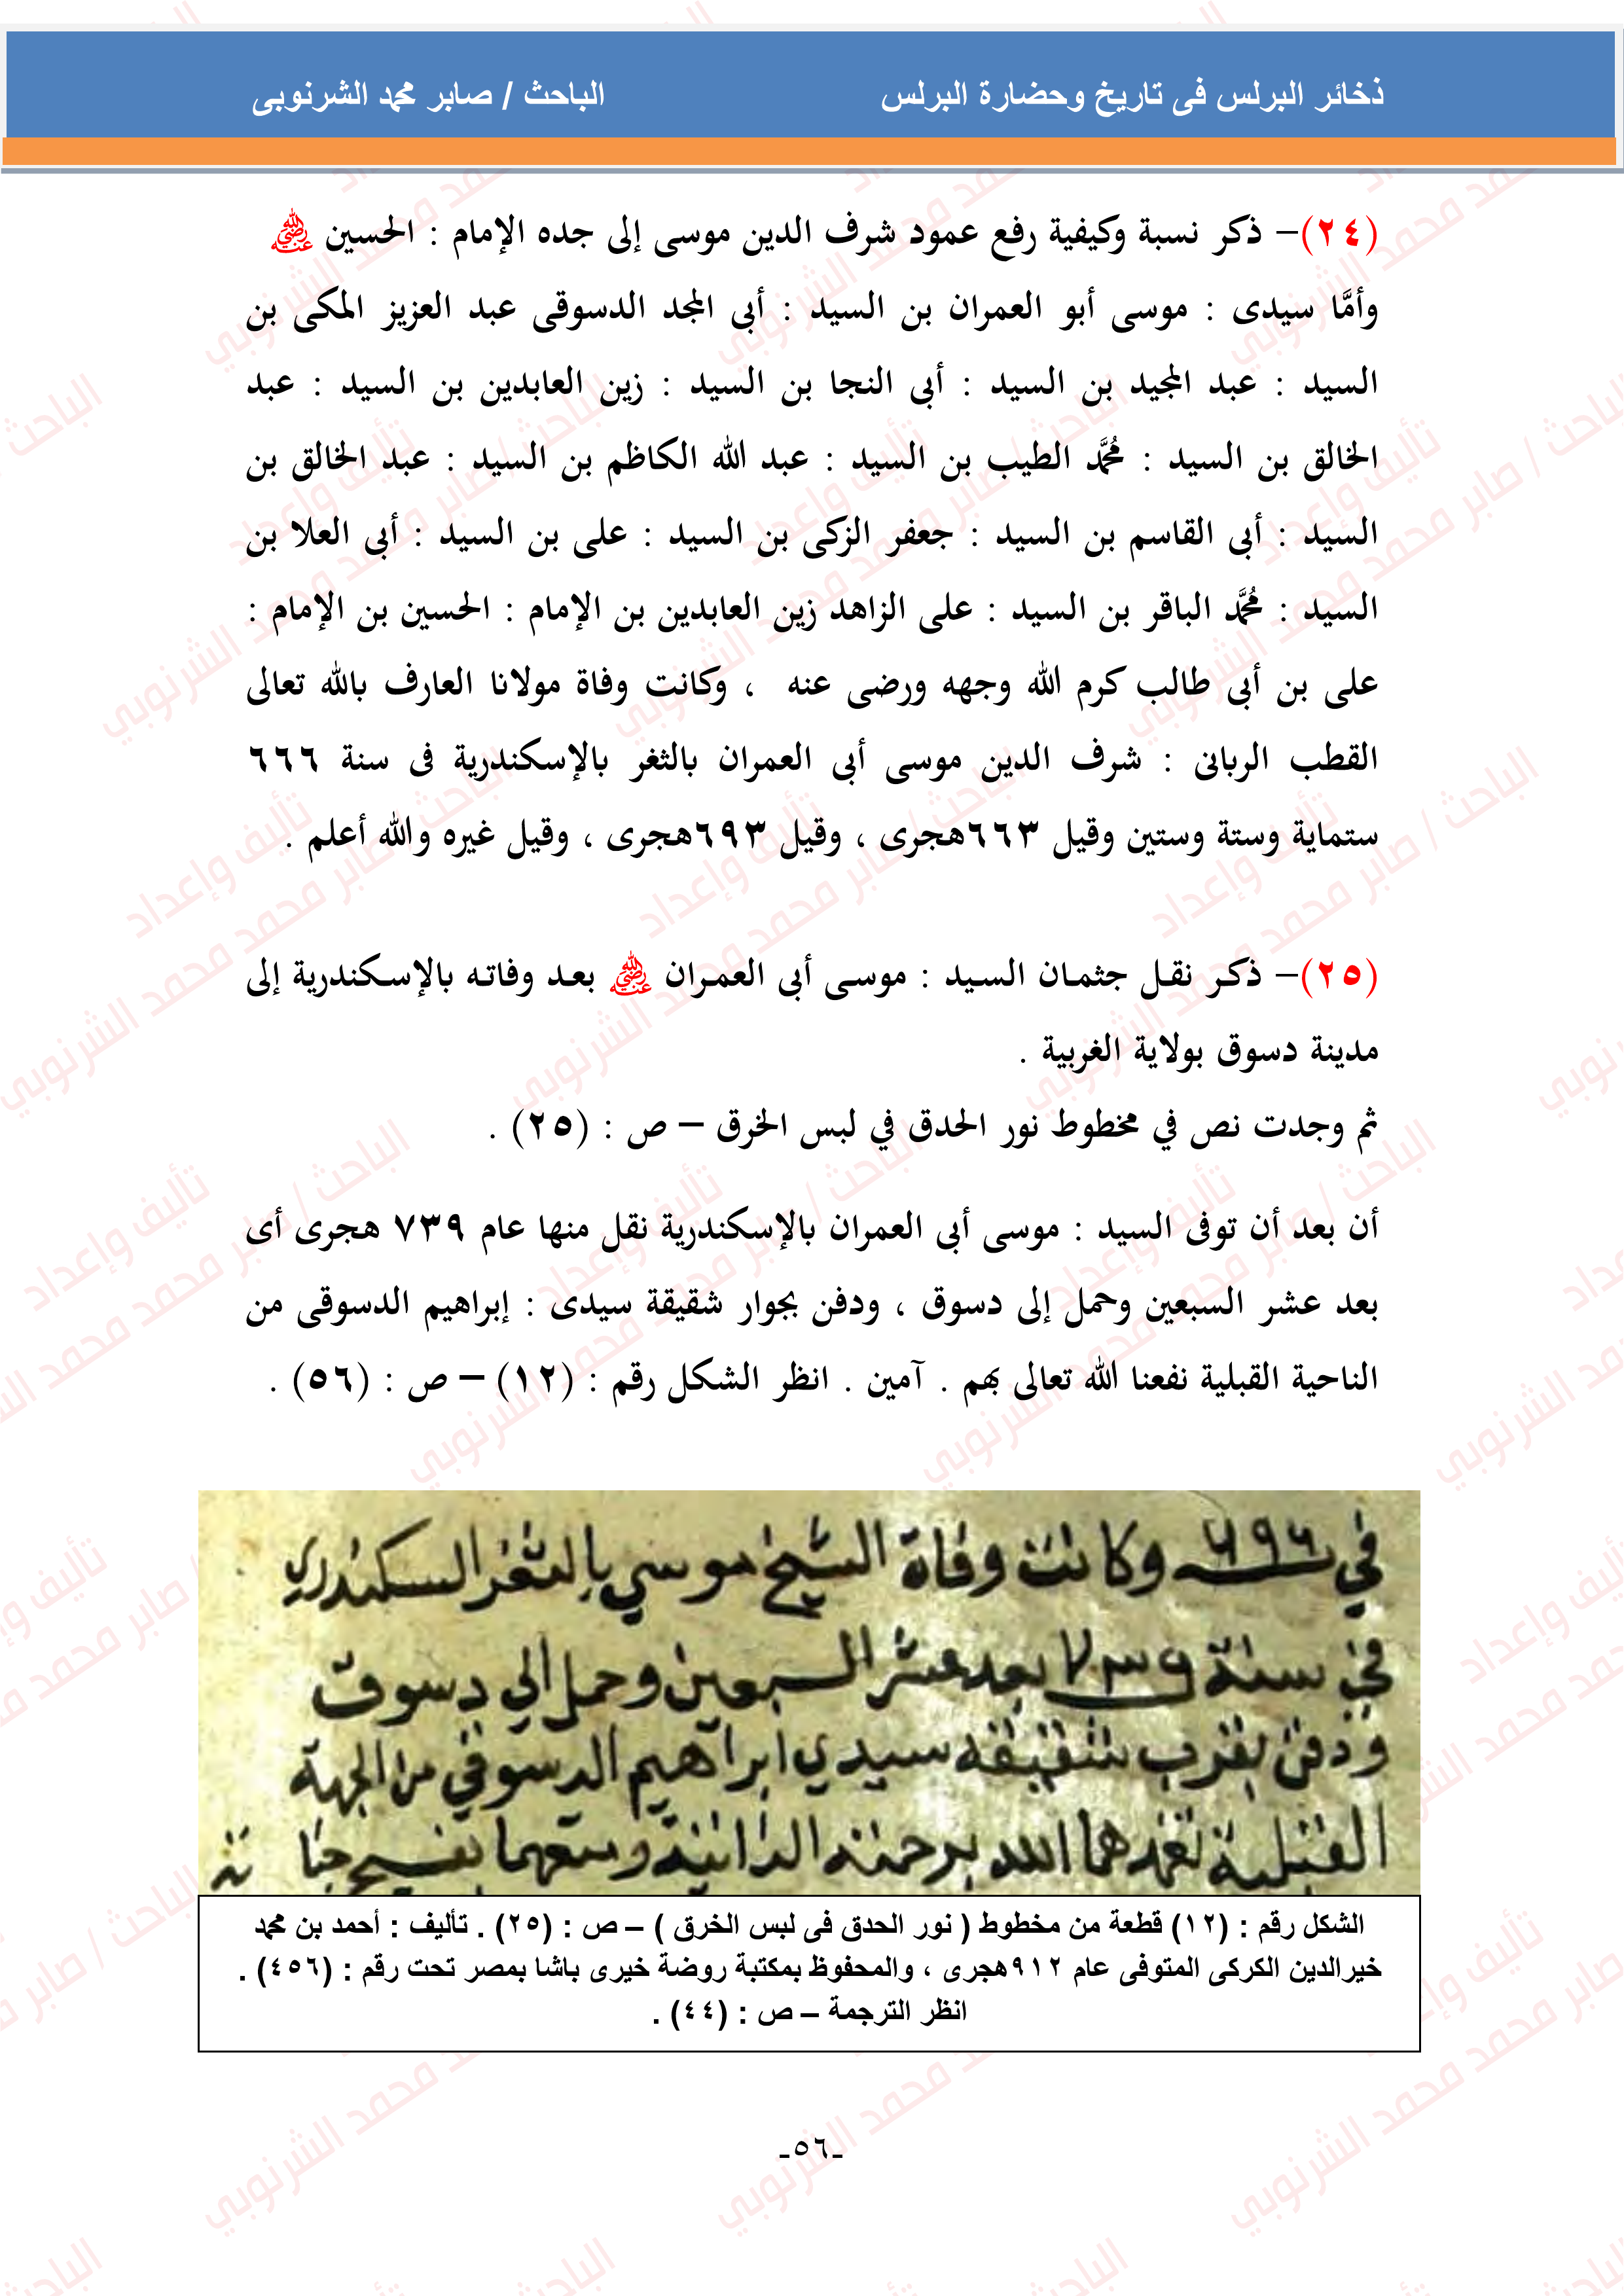 ذخائر البرلس فى تاريخ وحضارة البرلس الباحث / صابر محمد الشرنوبى
(٢٤)- ذكر نسبة وكيفية رفع عمود شرف الدين موسى إلى جده الإمام : الحسين ﷜
وأمَّا سيدى : موسى أبو العمران بن السيد : أبى المجد الدسوقى عبد العزيز المكى بن
السيد : عبد المجيد بن السيد : أبى النجا بن السيد : زين العابدين بن السيد : عبد
الخالق بن السيد : مُحَمَّد الطيب بن السيد : عبد الله الكاظم بن السيد : عبد الخالق بن
السيد : أبى القاسم بن السيد : جعفر الزكى بن السيد : على بن السيد : أبى العلا بن
السيد : مُحَمَّد الباقر بن السيد : على الزاهد زين العابدين بن الإمام : الحسين بن الإمام :
على بن أبى طالب كرم الله وجهه ورضى عنه ، وكانت وفاة مولانا العارف بالله تعالى
القطب الربانى : شرف الدين موسى أبى العمران بالثغر بالإسكندرية فى سنة ٦٦٦
ستماية وستة وستين وقيل ٦٦٣هجرى ، وقيل ٦٩٣هجرى ، وقيل غيره والله أعلم .
(٢٥)- ذكر نقل جثمان السيد : موسى أبى العمران ﷜ بعد وفاته بالإسكندرية إلى
مدينة دسوق بولاية الغربية .
ثم وجدت نص في مخطوط نور الحدق في لبس الخرق – ص : (٢٥) .
أن بعد أن توفى السيد : موسى أبى العمران بالإسكندرية نقل منها عام ٧٣٩ هجرى أى
بعد عشر السبعين وحمل إلى دسوق ، ودفن بجوار شقيقة سيدى : إبراهيم الدسوقى من
الناحية القبلية نفعنا الله تعالى بهم . آمين . انظر الشكل رقم : (١٢) – ص : (٥٦) .
في ٦٩٦ وكانت وفاة الشيخ موسي بالثغر السكندري
في سنة ٧٣٩ بعد عشر السبعين وحمل الي دسوق
ودفن بقرب شقيقه سيدي ابراهيم الدسوقي من الجهة
القبلية تغمدهما الله برحمته
الشكل رقم : (١٢) قطعة من مخطوط ( نور الحدق فى لبس الخرق ) – ص : (٢٥) . تأليف : أحمد بن محمد
خيرالدين الكركى المتوفى عام ٩١٢هجرى ، والمحفوظ بمكتبة روضة خيرى باشا بمصر تحت رقم : (٤٥٦) .
انظر الترجمة – ص : (٤٤) .
-٥٦-